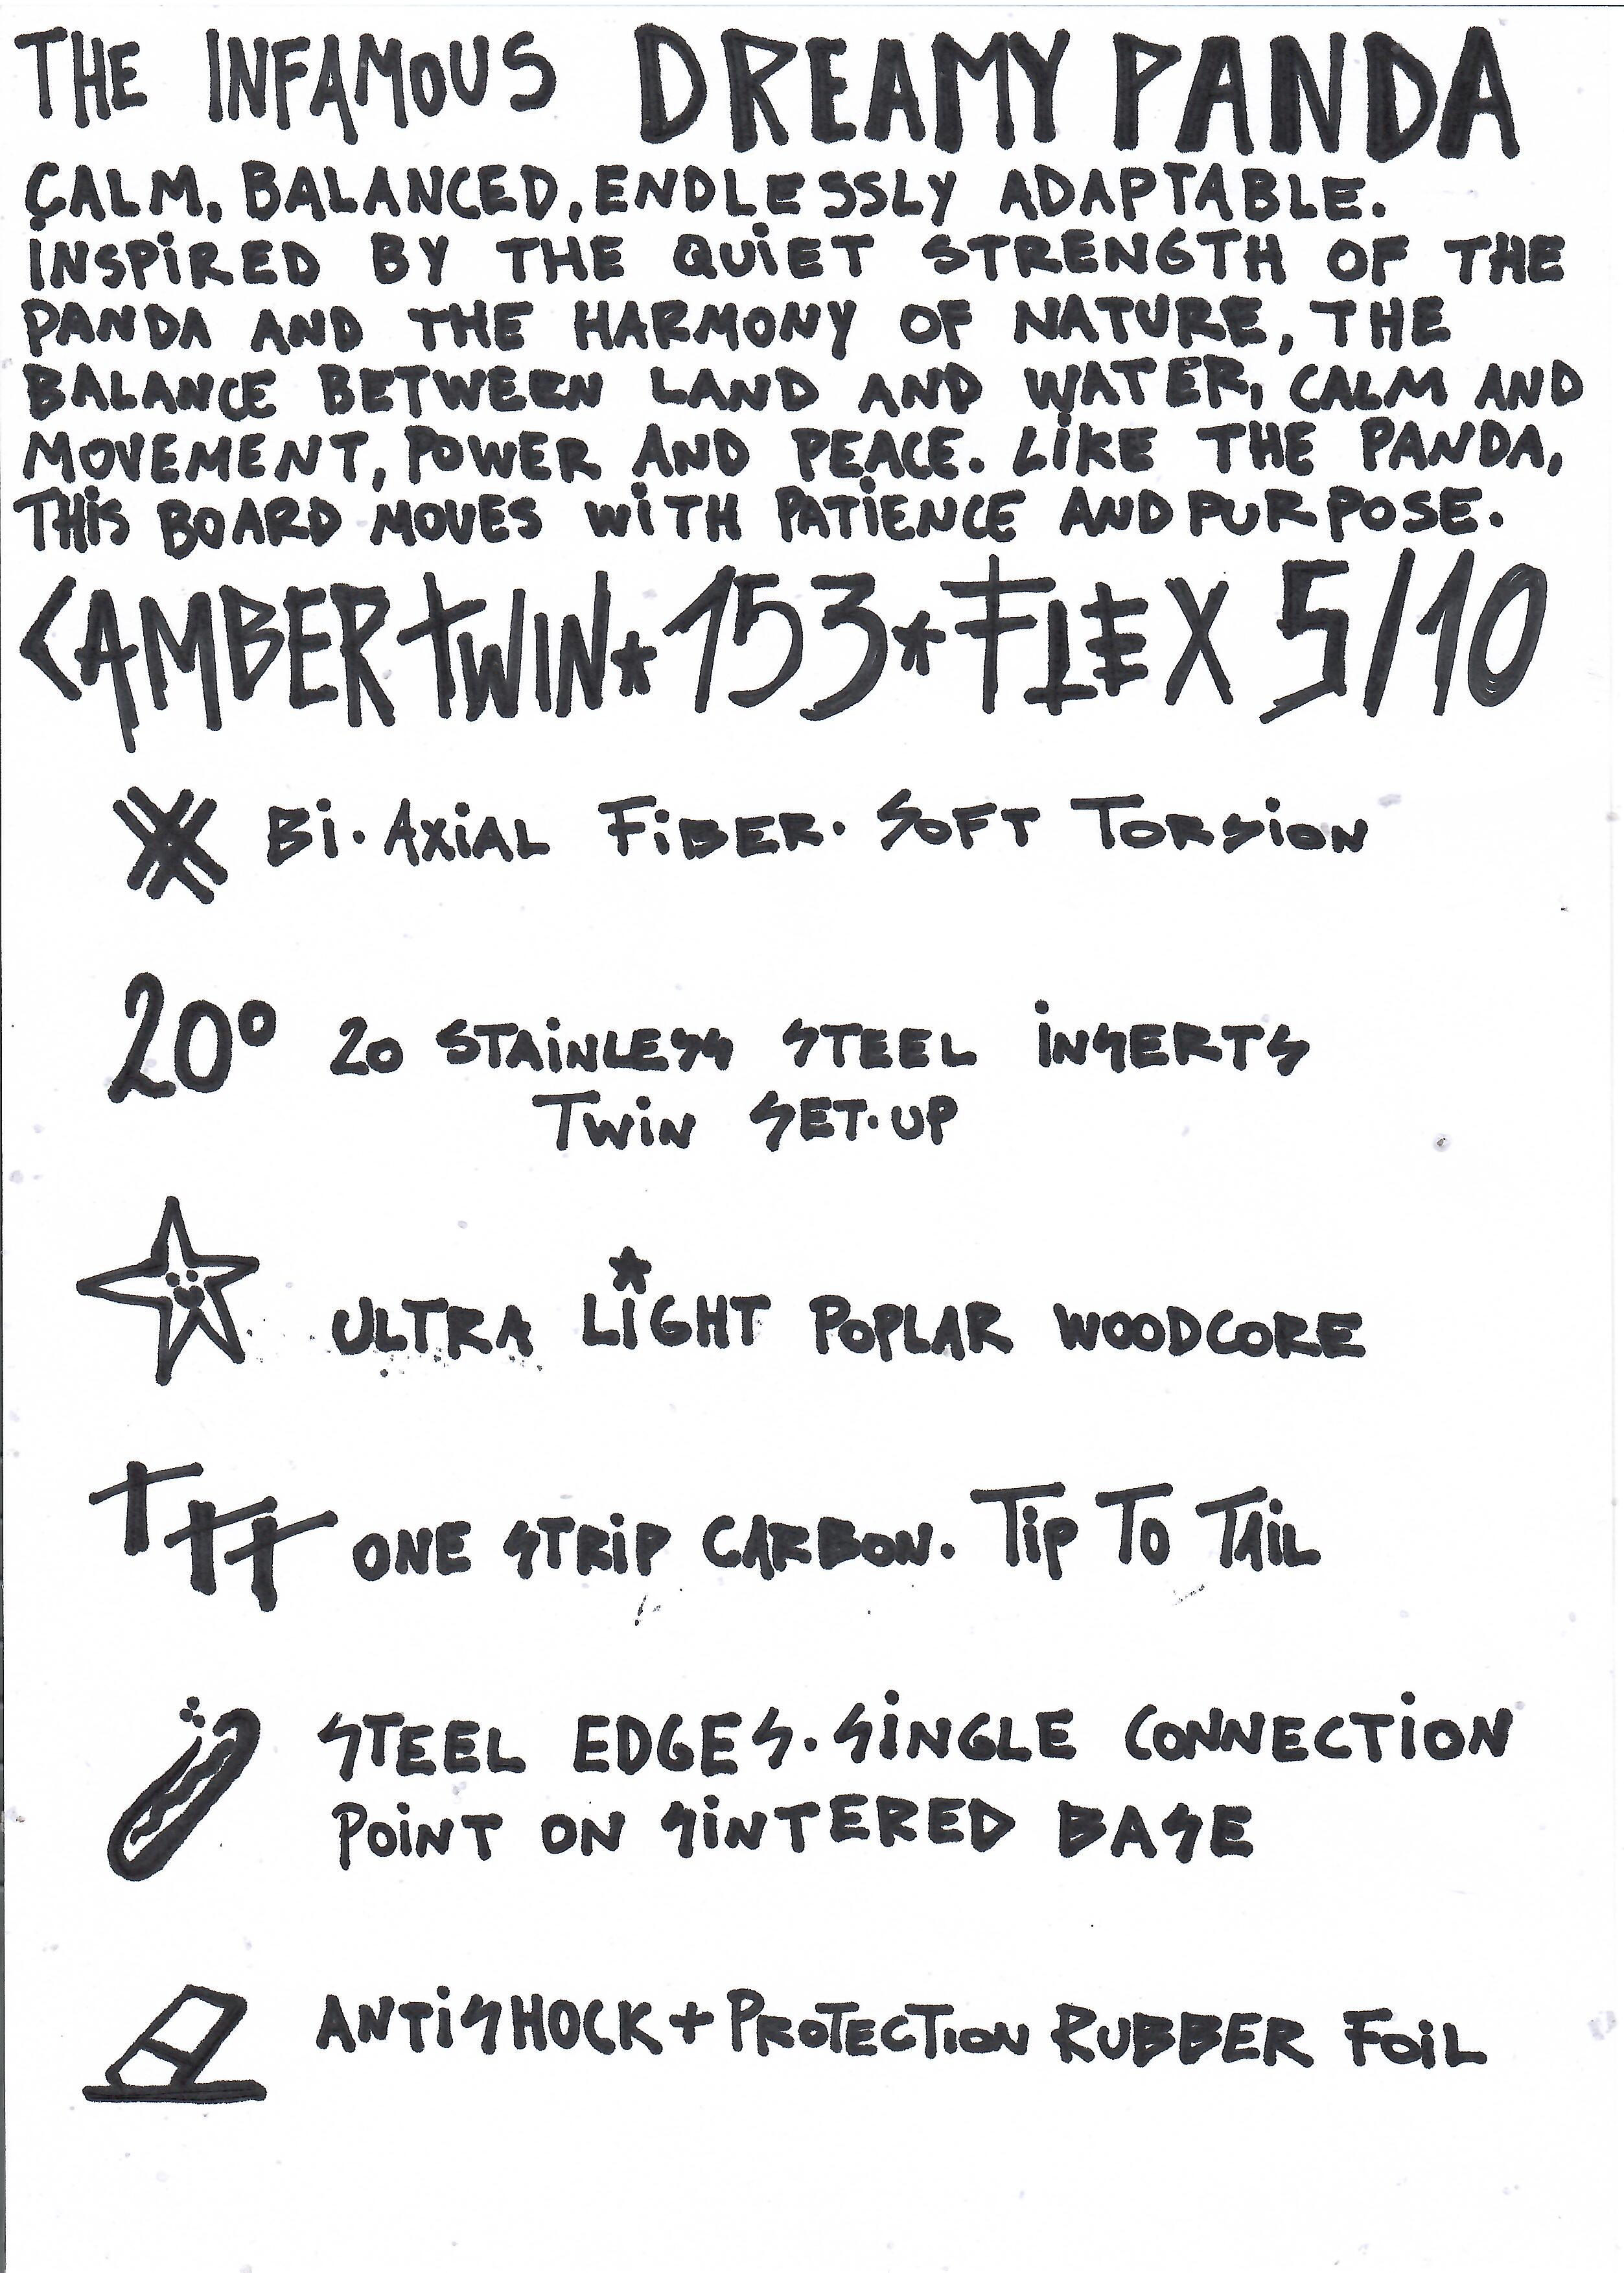 THE INFAMOUS DREAMY PANDA
CALM, BALANCED, ENDLESSLY ADAPTABLE.
INSPIRED BY THE QUIET STRENGTH OF THE
PANDA AND THE HARMONY OF NATURE, THE
BALANCE BETWEEN LAND AND WATER, CALM AND
MOVEMENT, POWER AND PEACE. LIKE THE PANDA,
THIS BOARD MOVES WITH PATIENCE AND PURPOSE.
CAMBER TWIN * 153 * FLEX 5/10
BI·AXIAL FIBER· SOFT TORSION
20° 20 STAINLESS STEEL INSERTS
TWIN SET·UP
ULTRA LIGHT POPLAR WOODCORE
ONE STRIP CARBON. TIP TO TAIL
STEEL EDGES·SINGLE CONNECTION
POINT ON SINTERED BASE
ANTISHOCK + PROTECTION RUBBER FOIL